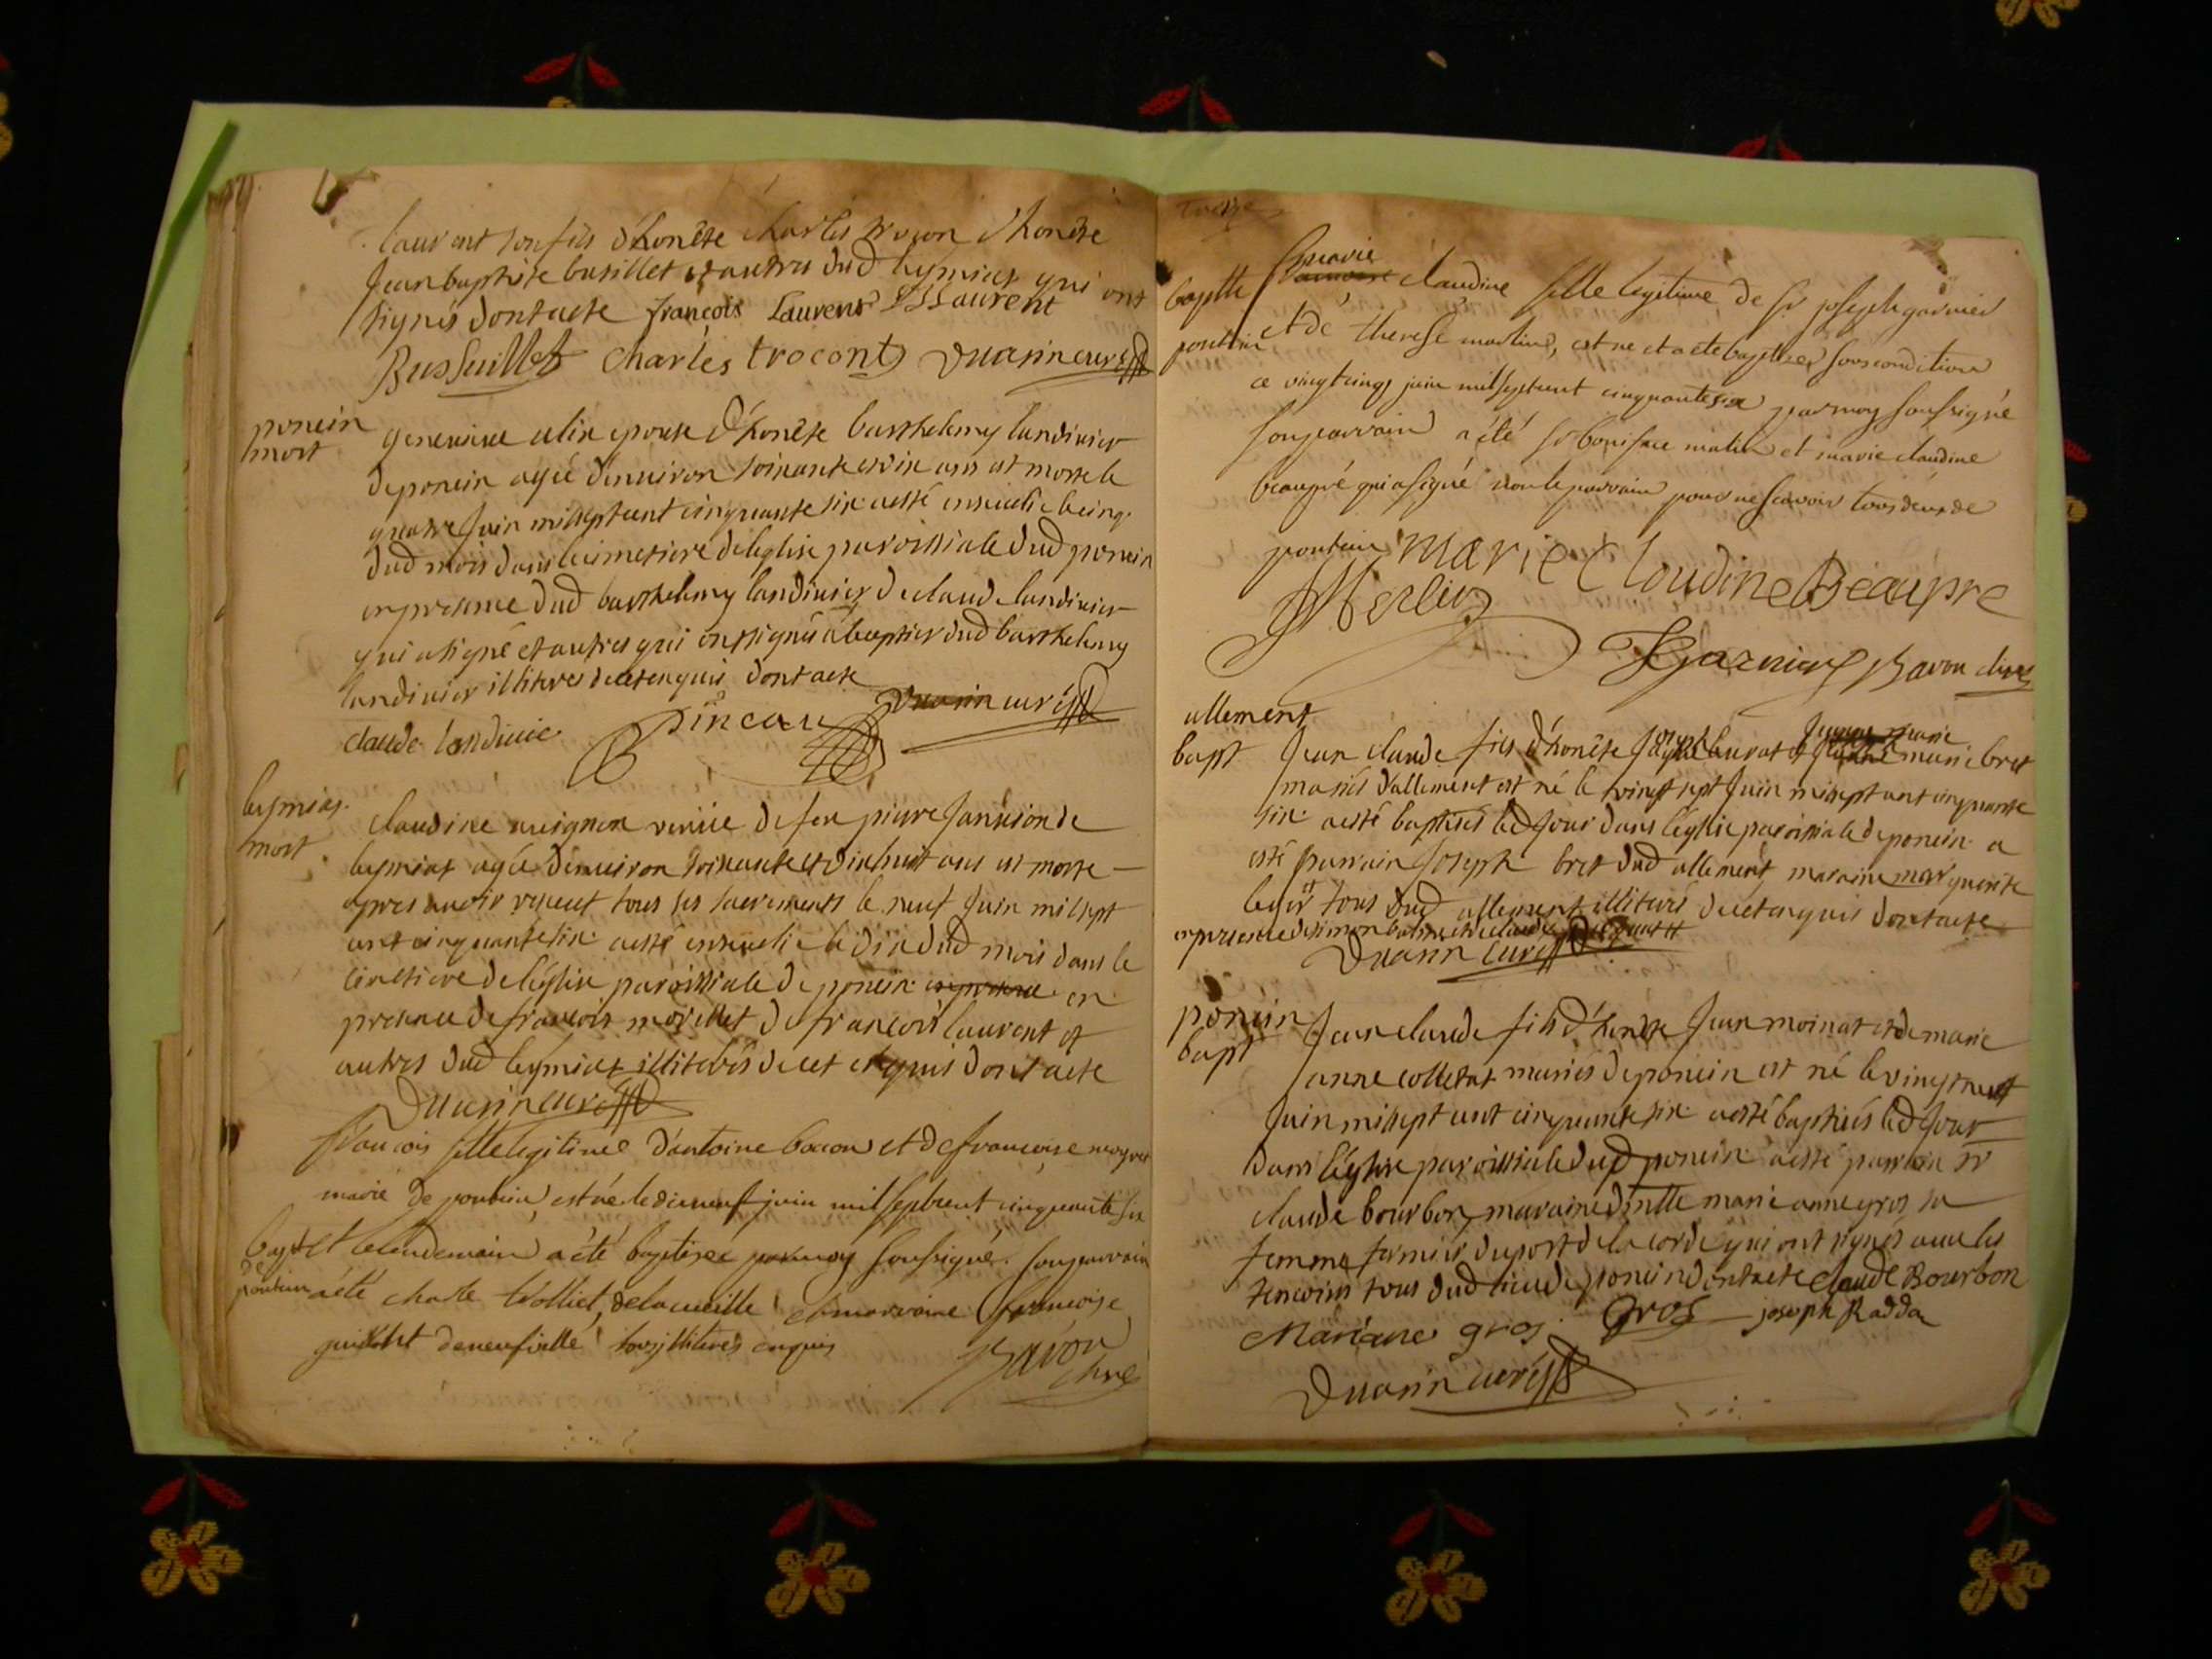 laurent son fils d'honête charles trocon d'honête
Jean baptiste busillet et autres dud leymiat qui ont
signés dont acte françois Laurent Laurent
Bussuillet charles trocont Duarin curé
ponein
mort
genevieve uelin epouse d'honête barthelemy landinier
de ponein agée d'enuiron soixante et dix ans est morte le
quatre Juin mil sept cent cinquante six a esté enseuelie le cinq
dud mois dans le cimetiere de leglise paroissiale dud ponein
en presence dud barthelemy landinier de claude landinier
qui a signé et autres qui ont signés a l'exeption dud barthelemy
landinier illiteré de ce enquis dont acte
claude landinie Pineau Duarin curé
leymiat
mort
claudine auignon veuue de feu pierre Janerion de
leymiat agée d'enuiron soixante et dix huit ans est morte
apres auoir receut tous ses sacrements le neuf Juin mil sept
cent cinquante six a esté enseuelie le dix dud mois dans le
cimetiere de l'église paroissiale de ponein en presence en
presence de françois morellet de françois laurent et
autres dud leymiat illiterés de cet enquis dont acte
Duarin curé
francois fille legitime d'antoine bacon et de francoise
marié de pontein est née le dixneuf juin mil sept cent cinquante six
bapt et le lendemain a été baptisée par moy soussigné son parrain
de
pontein a été charle Wolliet de la cueille et marraine francoise
guillot de neufville tous illiterés enquis
Bavon
curé
baptt
pontein
marie
claudine fille legitime de sr joseph garnier
et de therese martin, est ne et a été baptisée sous condition
ce vingt cinq juin mil sept cent cinquante six par moy soussigné
son parrain a été sr boniface et marie claudine
beaupré qui a signé non le parrain pour ne scavoir tous deux de
pontein Marie Cloudine Béaupre
Merlin
Garnier Bavon curé
allement
bapt
Jeanne marie
Jean claude fils d'honête Joseph et marie bret
mariés d'allement est né le vingt sept Juin mil sept cent cinquante
six a esté baptisés led Jour dans l'église paroissiale de ponein a
esté parrain Joseph bret dud allement maraine marguerite
tous dud allement illiterés de ce enquis dont acte
en presence de simon et de claude
Duarin curé
ponein
bapt
Jean claude fils d'honête Jean moinat et de marie
anne colletat mariés de ponein est né le vingt neuf
Juin mil sept cent cinquante six a esté baptisés led Jour
dans l'église paroissiale dud ponein a esté parrain sr
claude bourbon, maraine dmlle marie anne gros sa
femme fermier du port de la corde qui ont signés auec les
temoins tous dud lieu de ponein dont acte claude Bourbon
Mariane gros gros joseph Raddoz
Duarin curé